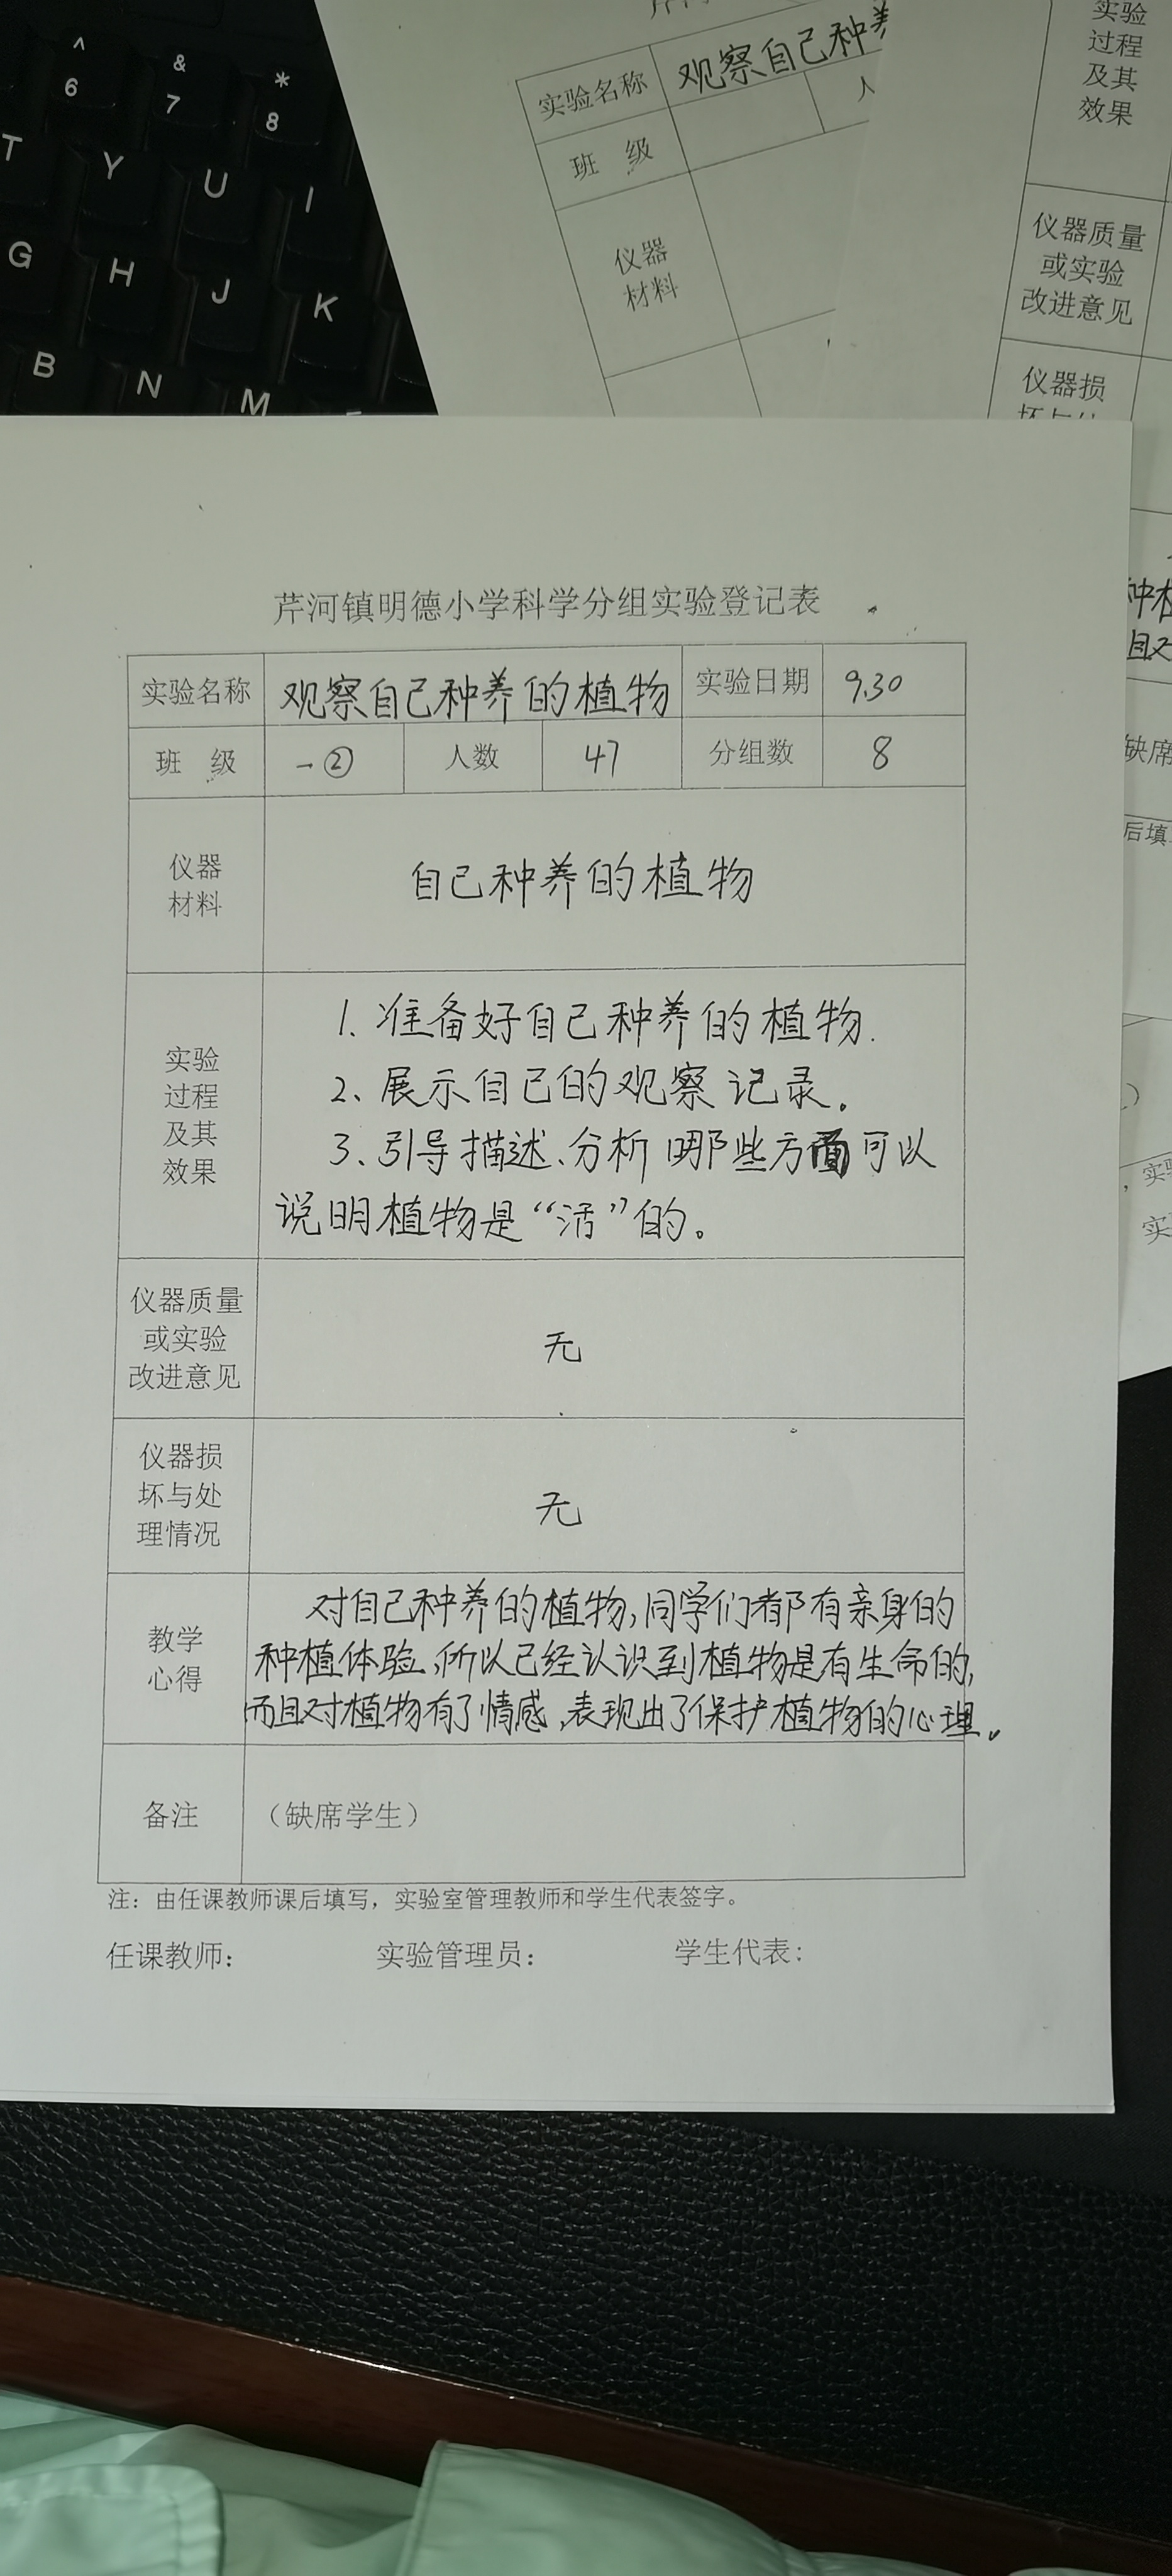 ^ & *
6 7 8
T Y U I
G H J K
B N M
实验名称 观察自己种养
班 级 人
仪器
材料
实验
过程
及其
效果
仪器质量
或实验
改进意见
仪器损
芹河镇明德小学科学分组实验登记表
实验名称 观察自己种养的植物 实验日期 9.30
班 级 一② 人数 47 分组数 8
仪器
材料
自己种养的植物
实验
过程
及其
效果
1、准备好自己种养的植物.
2、展示自己的观察记录。
3、引导描述、分析哪些方面可以
说明植物是“活”的。
仪器质量
或实验
改进意见
无
仪器损
坏与处
理情况
无
教学
心得
对自己种养的植物,同学们都有亲身的
种植体验,所以已经认识到植物是有生命的,
而且对植物有了情感,表现出了保护植物的心理。
备注 （缺席学生）
注：由任课教师课后填写，实验室管理教师和学生代表签字。
任课教师： 实验管理员： 学生代表：
种植
且对
缺席
后填
实验
实